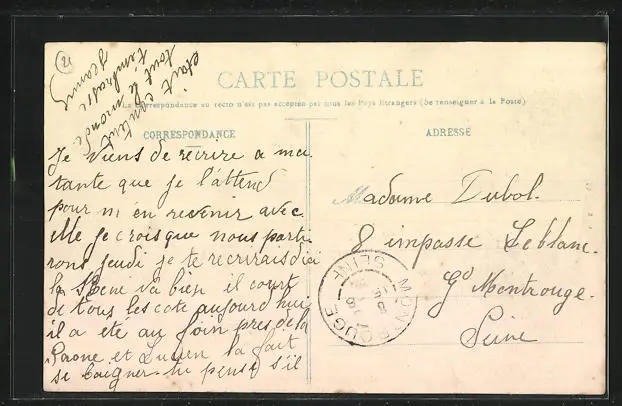 21
CARTE POSTALE
La Correspondance au recto n'est pas acceptée par tous les Pays Etrangers (Se renseigner à la Poste)
CORRESPONDANCE
Je viens de recrire a ma
tante que je l'attend
pour m'en revenir avec
elle je crois que nous parti
rons jeudi je te recrirais d'ici
la Réne va bien il court
de tous les cote aujourd'hui
il a ete au foin pres de la
Saone et Lucien la fait
se baigner tu pense s'il
etait content
tout le monde
t'embrasse
Jeanne
ADRESSE
Madame Dubol.
8 impasse Leblanc.
Gd Montrouge.
Seine
MONTROUGE
SEINE